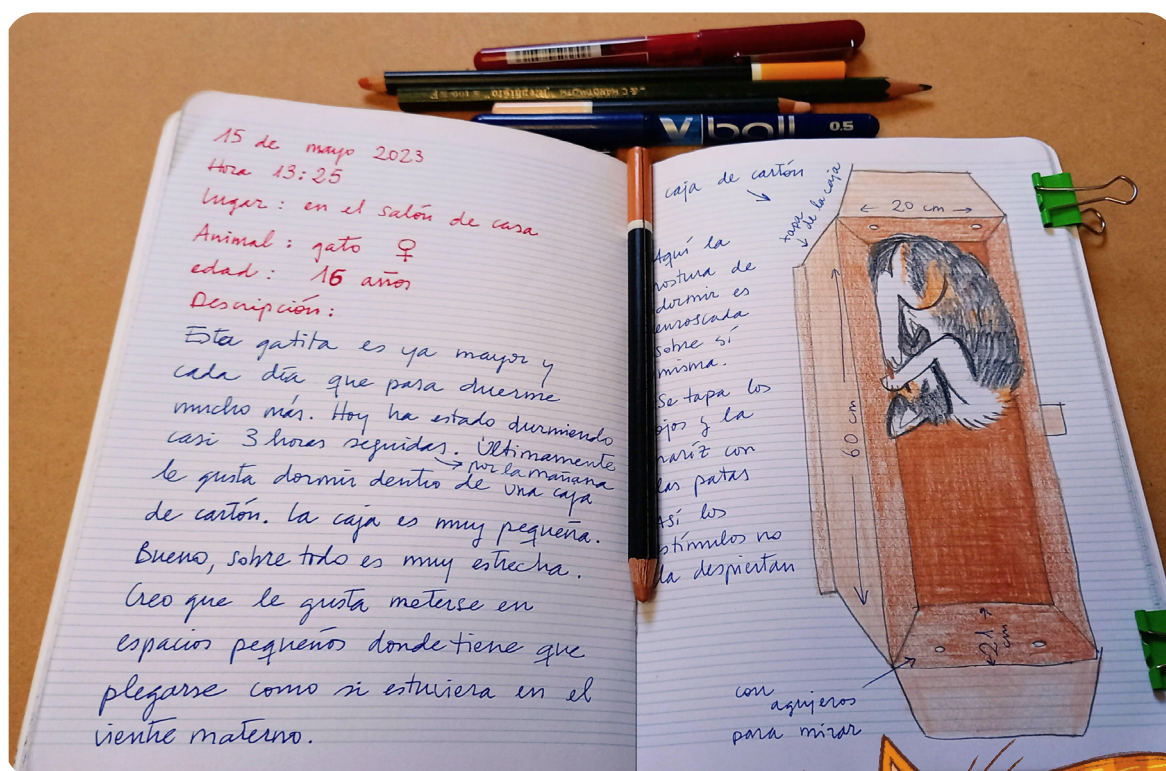 15 de mayo 2023
Hora 13:25
Lugar: en el salón de casa
Animal: gato ♀
edad: 16 años
Descripción:
Esta gatita es ya mayor y
cada día que pasa duerme
mucho más. Hoy ha estado durmiendo
casi 3 horas seguidas. Últimamente
→ por la mañana
le gusta dormir dentro de una caja
de cartón. La caja es muy pequeña.
Bueno, sobre todo es muy estrecha.
Creo que le gusta meterse en
espacios pequeños donde tiene que
plegarse como si estuviera en el
vientre materno.
V ball 0.5
caja de cartón
tapa
de la caja
Aquí la
postura de
dormir es
enroscada
sobre sí
misma.
Se tapa los
ojos y la
naríz con
las patas
Así los
estímulos no
la despiertan
← 20 cm →
← 60 cm →
← 21 →
cm
con
agujeros
para mirar